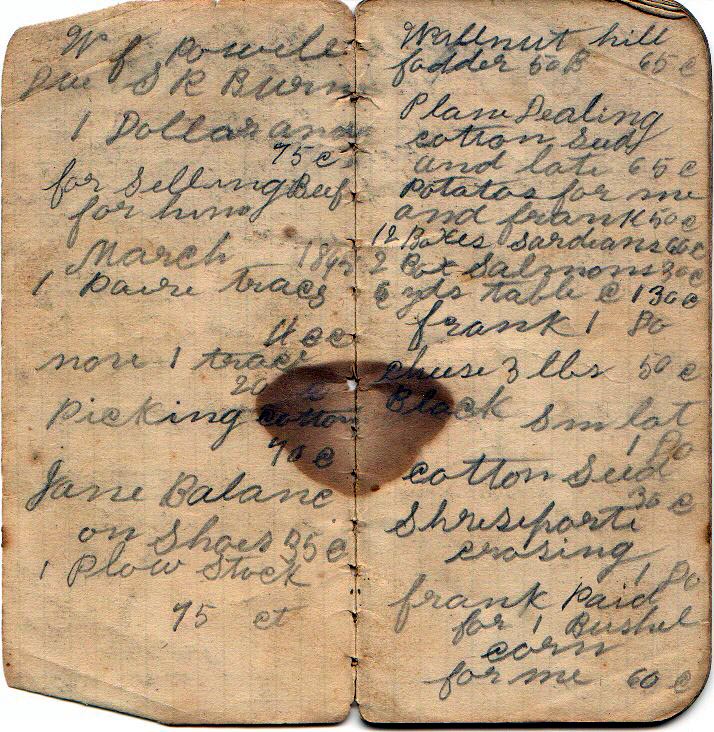 W f Powell
Due S R Burn
1 Dollar and
75 c
for Selling Beef
for him
March 189
1 paire traces
40 c
non 1 trace
20 c
Picking cotton
70 c
Jane Balanc
on Shoes 35 c
1 Plow Stock
75 ct
Wallnut hill
fodder 50 B 65 c
Plain Dealing
cotton Seed
and late 65 c
Potatos for me
and frank 50 c
12 Boxes Sardeans 60 c
2 Box Salmons 30 c
yds table c 1 30 c
frank 1 80
cheese 3 lbs 50 c
Black Sm lat
1 80
cotton Seed
30 c
Shreseporte
crosing
1 80
frank Paid
for 1 Bushel
corn
for me 60 c